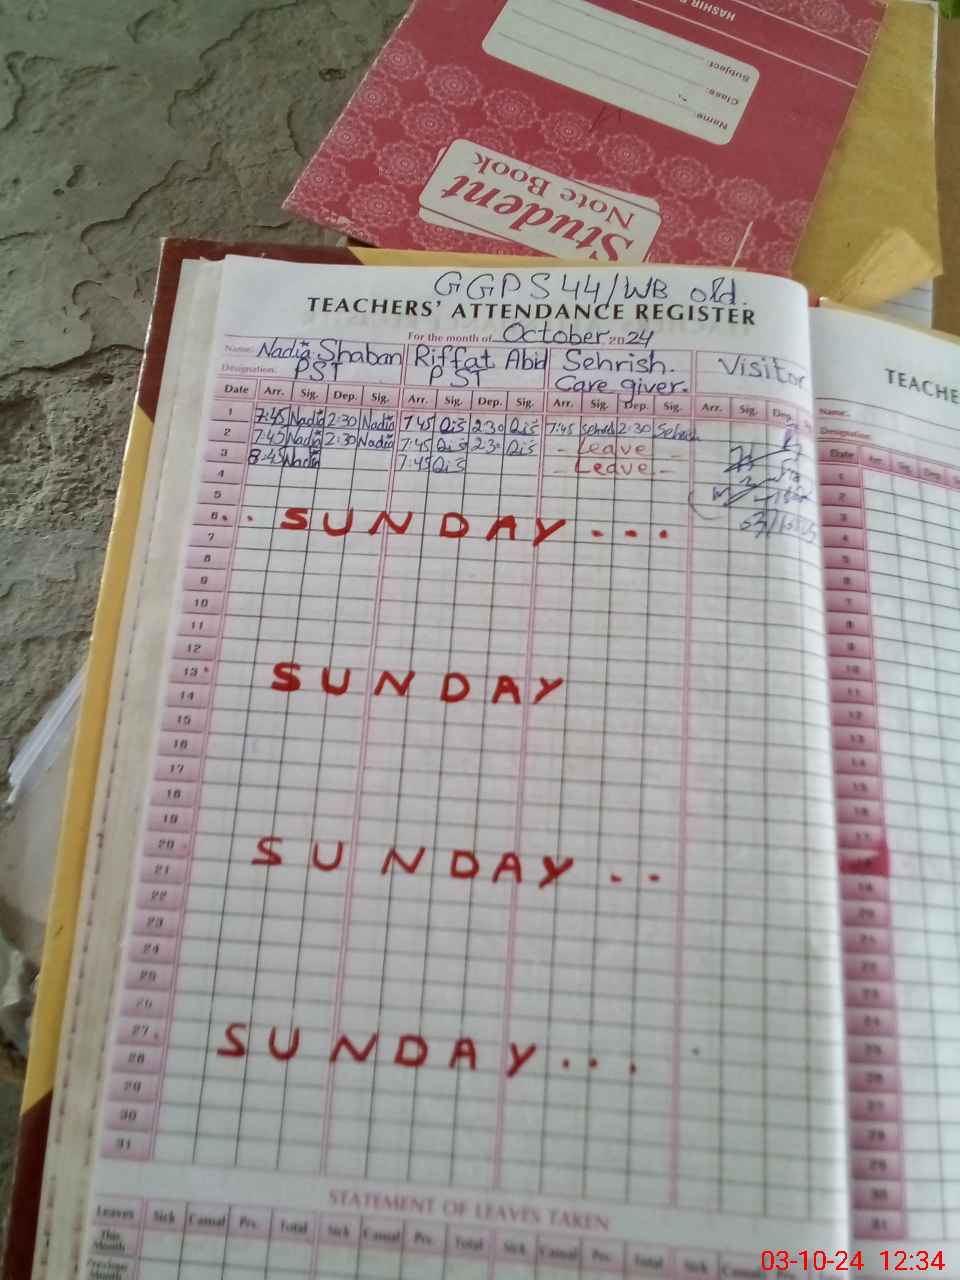 HASHIR
Subject:
Class:
Name:
Student
Note Book
GGPS 44/WB old.
TEACHERS' ATTENDANCE REGISTER
For the month of October, 2024
Name: Nadia Shaban Riffat Abid Sehrish. Visitor
Designation: PST PST Care giver.
Date Arr. Sig. Dep. Sig. Arr. Sig. Dep. Sig. Arr. Sig. Dep. Sig. Arr. Sig. Dep.
1 7:45 Nadia 2:30 Nadia 7:45 2:30 7:45 Sehrish 2:30 Sehrish
2 7:45 Nadia 2:30 Nadia 7:45 2:30 - Leave -
3 8:45 Nadia 7:45 - Leave -
4
5
6 SUNDAY...
7
8
9
10
11
12
13 SUNDAY
14
15
16
17
18
19
20 SUNDAY..
21
22
23
24
25
26
27 SUNDAY...
28
29
30
31
STATEMENT OF LEAVES TAKEN
Leaves Sick Casual Prv. Total Sick Casual Prv. Total Sick Casual Prv. Total Sick Casual
This Month
Previous Month
TEACHE
Name:
Designation:
Date Arr. Sig. Dep.
1
2
3
4
5
6
7
8
9
10
11
12
13
14
15
16
17
18
19
20
21
22
23
24
25
26
27
28
29
30
31
03-10-24 12:34